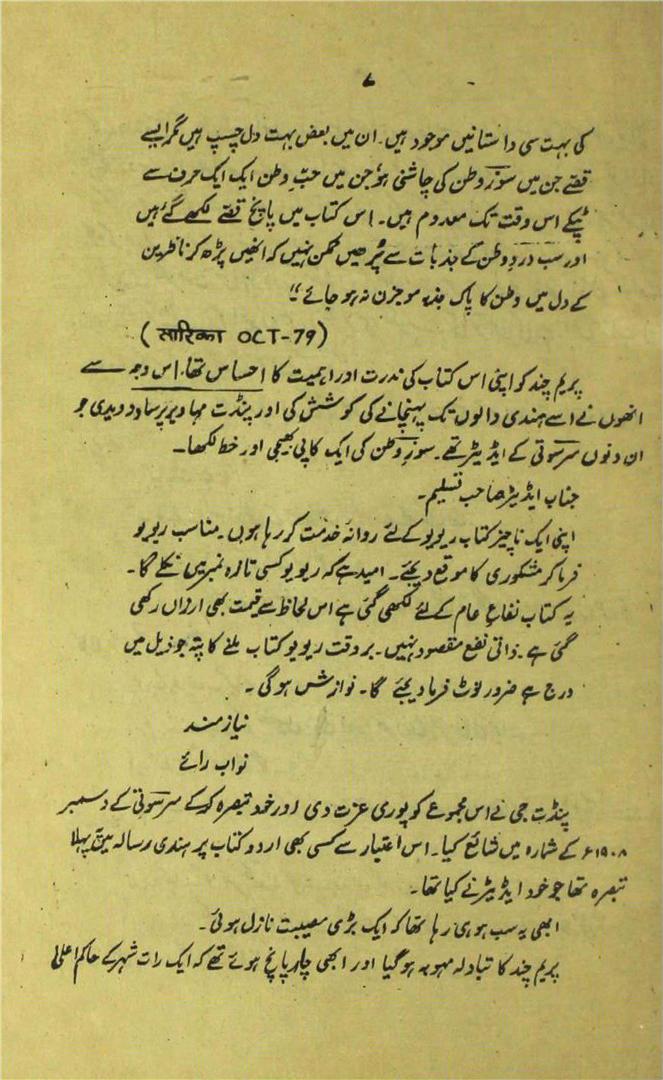 ۷
کی بہت سی داستانیں موجود ہیں۔ ان میں بعض بہت دلچسپ ہیں مگر ایسے
قصّے جن میں سوزِ وطن کی چاشنی ہو جن میں حبِّ وطن ایک ایک حرف سے
ٹپکے اس وقت تک معدوم ہیں۔ اس کتاب میں پانچ قصّے لکھے گئے ہیں
اور سب دردِ وطن کے جذبات سے پُر ھیں ممکن نہیں کہ انھیں پڑھ کر ناظرین
کے دل میں وطن کا پاک جذبہ موجزن نہ ہو جائے“
(सारिका OCT-79)
پریم چند کو اپنی اس کتاب کی ندرت اور اہمیت کا احساس تھا۔ اس وجہ سے
انھوں نے اسے ہندی دانوں تک پہنچانے کی کوشش کی اور پنڈت مہاویر پرساد دویدی جو
ان دنوں سرسوتی کے ایڈیٹر تھے۔ سوزِ وطن کی ایک کاپی بھیجی اور خط لکھا۔
جناب ایڈیٹر صاحب تسلیم۔
اپنی ایک ناچیز کتاب ریویو کے لئے روانہ خدمت کر رہا ہوں۔ مناسب ریویو
فرما کر مشکوری کا موقع دیجئے۔ امید ہے کہ ریویو کسی تازہ نمبر میں نکلے گا۔
یہ کتاب نفاعِ عام کے لئے لکھی گئی ہے اس لحاظ سے قیمت بھی ارزاں رکھی
گئی ہے۔ ذاتی نفع مقصود نہیں۔ بر وقت ریویو کتاب ملنے کا پتہ جو ذیل میں
درج ہے ضرور نوٹ فرما دیجئے گا۔ نوازش ہوگی۔
نیاز مند
نواب رائے
پنڈت جی نے اس مجموعے کو پوری عزت دی اور خود تبصرہ کرکے سرسوتی کے دسمبر
۱۹۰۸ء کے شمارہ میں شائع کیا۔ اس اعتبار سے کسی بھی اردو کتاب پر ہندی رسالہ میں یہ پہلا
تبصرہ تھا جو خود ایڈیٹر نے کیا تھا۔
ابھی یہ سب ہو ہی رہا تھا کہ ایک بڑی مصیبت نازل ہوئی۔
پریم چند کا تبادلہ مہوبہ ہو گیا اور ابھی چار پانچ ہوئے تھے کہ ایک رات شہر کے حاکم اعلیٰ